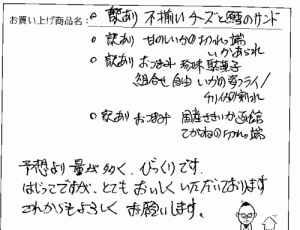 お買い上げ商品名: ○訳あり 不揃い チーズと鱈のサンド
○ 訳あり 甘のしいかの切れっ端
いかあられ
○ 訳あり おつまみ 珍味 駄菓子
組合せ自由 いかの姿フライ/
○ 訳あり おつまみ 国産さきいか 函館
てがねの切れっ端
予想より量が多く、びっくりです。
はじめてですが、とてもおいしくいただいております
これからもよろしく お願いします。